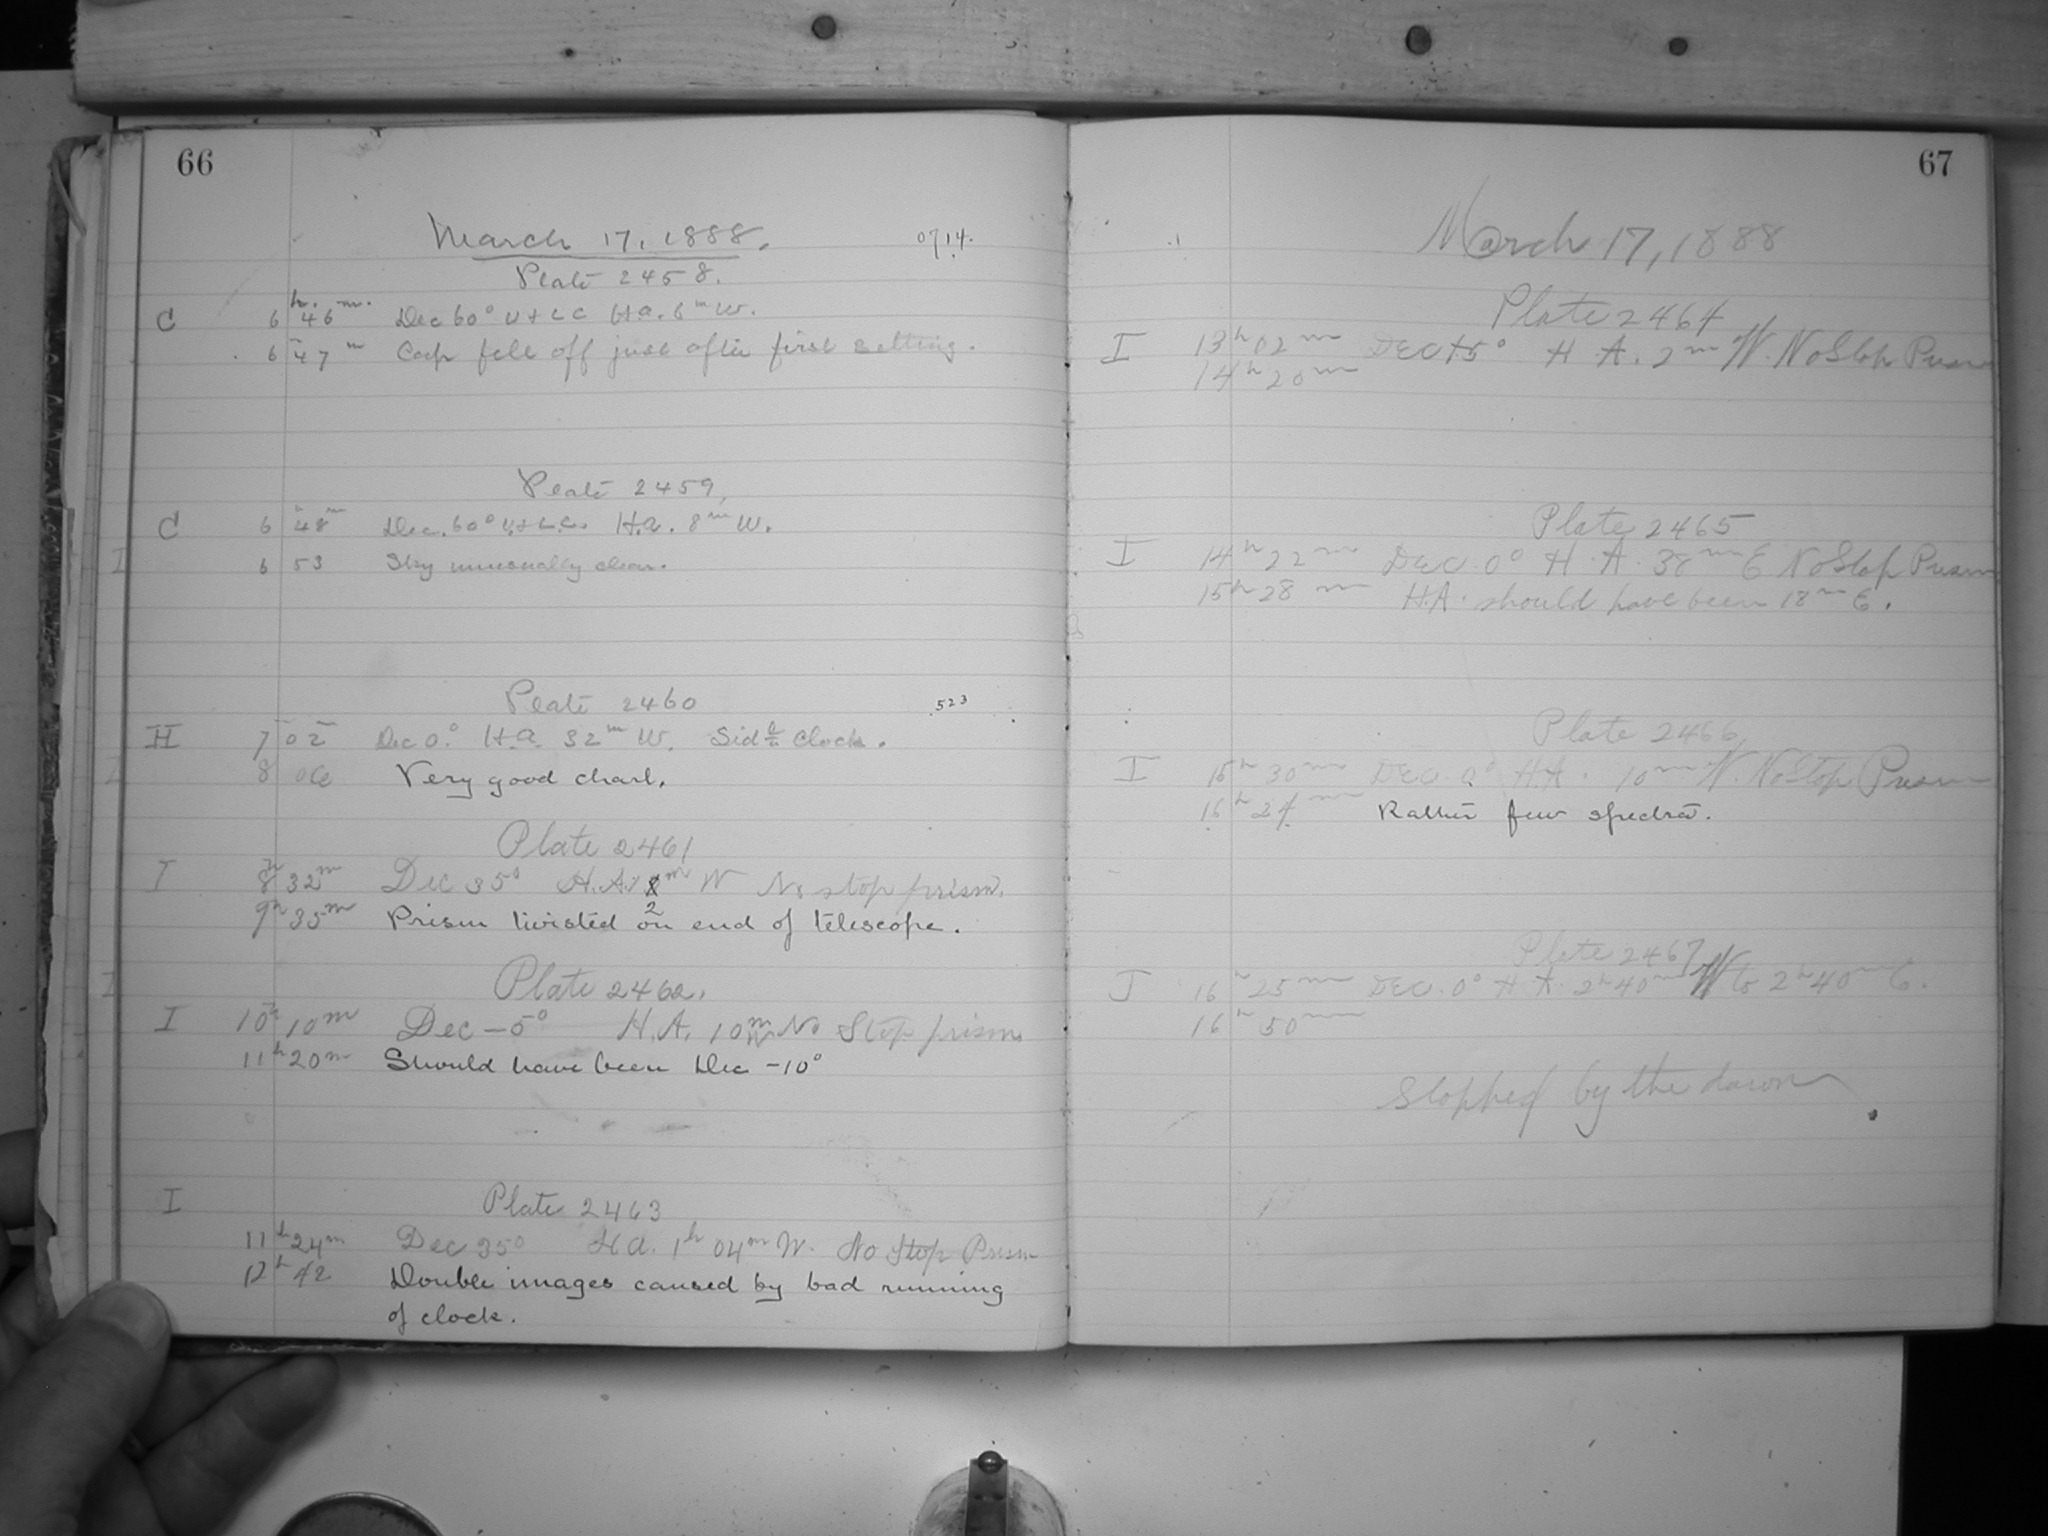 66
March 17, 1888.
0714.
Plate 2458.
C 6 h. 46 m. Dec 60° U + L C H.a. 6m W.
6 47 m Cap fell off just after first setting.
Plate 2459,
C 6 48m Dec. 60° U. + L.C. H.a. 8m W.
6 53 Sky unusually clear.
Plate 2460
.523
H 7 02 Dec 0°. H.a. 32m W. Sid'l Clock.
8 06 Very good chart.
Plate 2461
I 8h 32m Dec 35° H.A. m W No stop prism.
2
9h 35m Prism twisted on end of telescope.
Plate 2462.
I 10h 10m Dec -5° H.A. 10m W No Stop prism
11h 20m Should have been Dec -10°
I Plate 2463
11h 24m Dec 35° H a. 1h 04m W. No Stop Prism
12h 42 Double images caused by bad running
of clock.
67
March 17, 1888
Plate 2464
I 13h 02m Dec +5° H.A. 2m W. No Stop Prism
14h 20m
Plate 2465
I 14h 22m Dec. 0° H.A. 38m E No Stop Prism
15h 28m H.A. should have been 18m E.
Plate 2466
I 15h 30m Dec. 0° H.A. 10m W. No Stop Prism
16h 24m Rather few spectra.
Plate 2467
I 16h 25m Dec. 0° H.A. 2h 40m W to 2h 40m E.
16h 50m
Stopped by the dawn